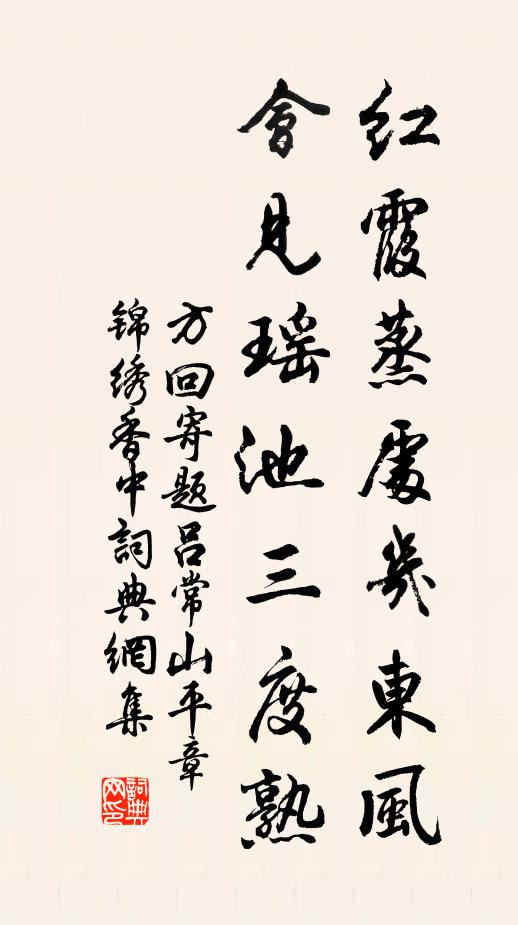 红霞蒸處幾東風
會見瑶池三度熟
方回寄题吕常山平章
锦绣香中詞典網集
詞典
网印